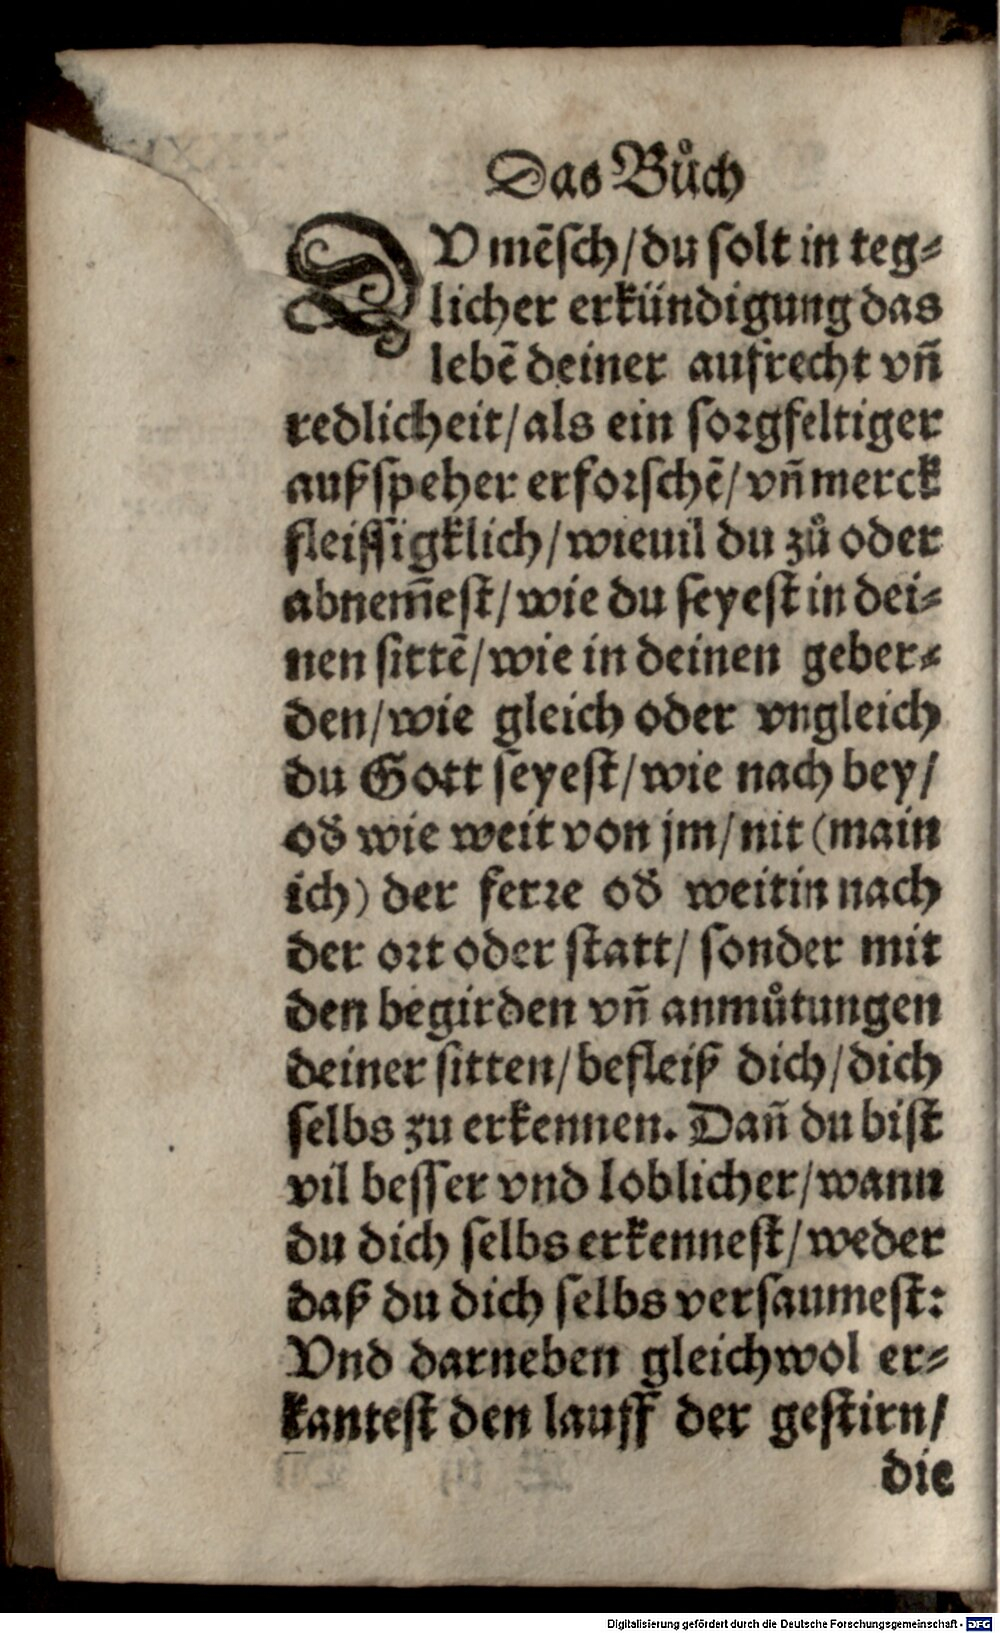 Das Bůch
DV mẽsch/du solt in teg⸗
licher erkündigung das
lebẽ deiner aufrecht vñ
redlicheit/als ein sorgfeltiger
außspeher erforschẽ/vñ merck
fleissigklich/wieuil du zů oder
abnem̃est/wie du seyest in dei⸗
nen sittẽ/wie in deinen geber⸗
den/wie gleich oder vngleich
du Gott seyest/wie nach bey/
oď wie weit von jm/nit (main
ich) der ferre oď weitin nach
der ort oder statt/sonder mit
den begirden vñ anmůtungen
deiner sitten/befleiß dich/dich
selbs zu erkennen. Dañ du bist
vil besser vnd loblicher/wann
du dich selbs erkennest/weder
daß du dich selbs versaumest:
Vnd darneben gleichwol er⸗
kantest den lauff der gestirn/
die
Digitalisierung gefördert durch die Deutsche Forschungsgemeinschaft - DFG